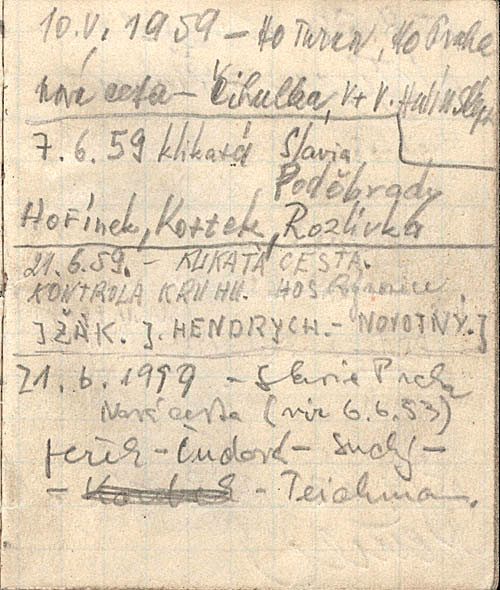 10.V. 1959 – Ho Turnov, Ho Praha
nová cesta – Cibulka, V+V.
7.6.59 klikatá Slavia
Poděbrady
Hořínek, Kostek, Rozlívka
21.6.59. – KLIKATÁ CESTA.
KONTROLA KRUHŮ. HOS
J ŽÁK. J. HENDRYCH. – NOVOTNÝ. J
21.6.1959 – Slavie Praha
Nová cesta (viz 6.6.53)
– Čudová – Suchý –
– – Teichman.